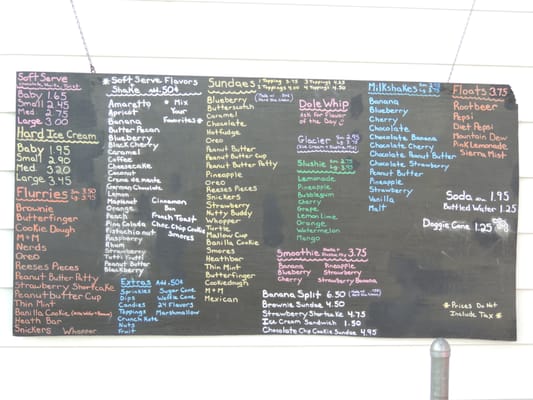 Soft Serve
Baby 1.65
Small 2.45
Med. 2.75
Large 3.00
Hard Ice Cream
Baby 1.95
Small 2.90
Med 3.20
Large 3.45
Flurries Sm 3.50
Lg 3.95
Brownie
Butterfinger
Cookie Dough
M+M
Nerds
Oreo
Reeses Pieces
Peanut Butter Patty
Strawberry Shortcake
Peanutbutter Cup
Thin Mint
Banilla Cookie
Heath Bar
Snickers Whopper
*Soft Serve Flavors
Shake add .50¢
Amaretto
Apricot
Banana
Butter Pecan
Blueberry
Black Cherry
Caramel
Coffee
Cheesecake
Coconut
Creme de mente
German Chocolate
Lemon
Maplenut
Orange
Peach
Pina Colada
Pistachio nut
Raspberry
Rhum
Strawberry
Tutti Frutti
Peanut Butter
Blackberry
* Mix
Your
Favorites *
Cinnamon
Bun
French Toast
Choc. Chip Cookie
Smores
Extras Add .50¢
Sprinkles
Dips
Candies
Toppings
Crunch Kote
Nuts
Fruit
Sugar Cone
Waffle Cone
24 Flavors
Marshmallow
Sundaes 1 Topping 3.75 3 Toppings 4.25
2 Toppings 4.00 4 Toppings 4.50
Blueberry
Butterscotch
Caramel
Chocolate
Hotfudge
Oreo
Peanut Butter
Peanut Butter Cup
Peanut Butter Patty
Pineapple
Oreo
Reeses Pieces
Snickers
Strawberry
Nutty Buddy
Whopper
Turtle
Mallow Cup
Banilla Cookie
Smores
Heathbar
Thin Mint
Butterfinger
Cookiedough
M+M
Mexican
Dole Whip
Ask for Flavor
of the Day
Glacier Sm 2.95
Lg 3.75
Slushie Sm 2.75
Lemonade
Pineapple
Bubblegum
Cherry
Grape
Lemon lime
Orange
Watermelon
Mango
Smoothie 3.75
Banana
Blueberry
Cherry
Pineapple
Strawberry
Strawberry Banana
Banana Split 6.50
Brownie Sundae 4.50
Strawberry Shortcake 4.75
Ice Cream Sandwich 1.50
Chocolate Chip Cookie Sundae 4.95
Milkshakes
Banana
Blueberry
Cherry
Chocolate
Chocolate Banana
Chocolate Cherry
Chocolate Peanut Butter
Chocolate Strawberry
Peanut Butter
Pineapple
Strawberry
Vanilla
Malt
Floats 3.75
Rootbeer
Pepsi
Diet Pepsi
Mountain Dew
Pink Lemonade
Sierra Mist
Soda 1.95
Bottled Water 1.25
Doggie Cone 1.25
* Prices Do Not
Include Tax *